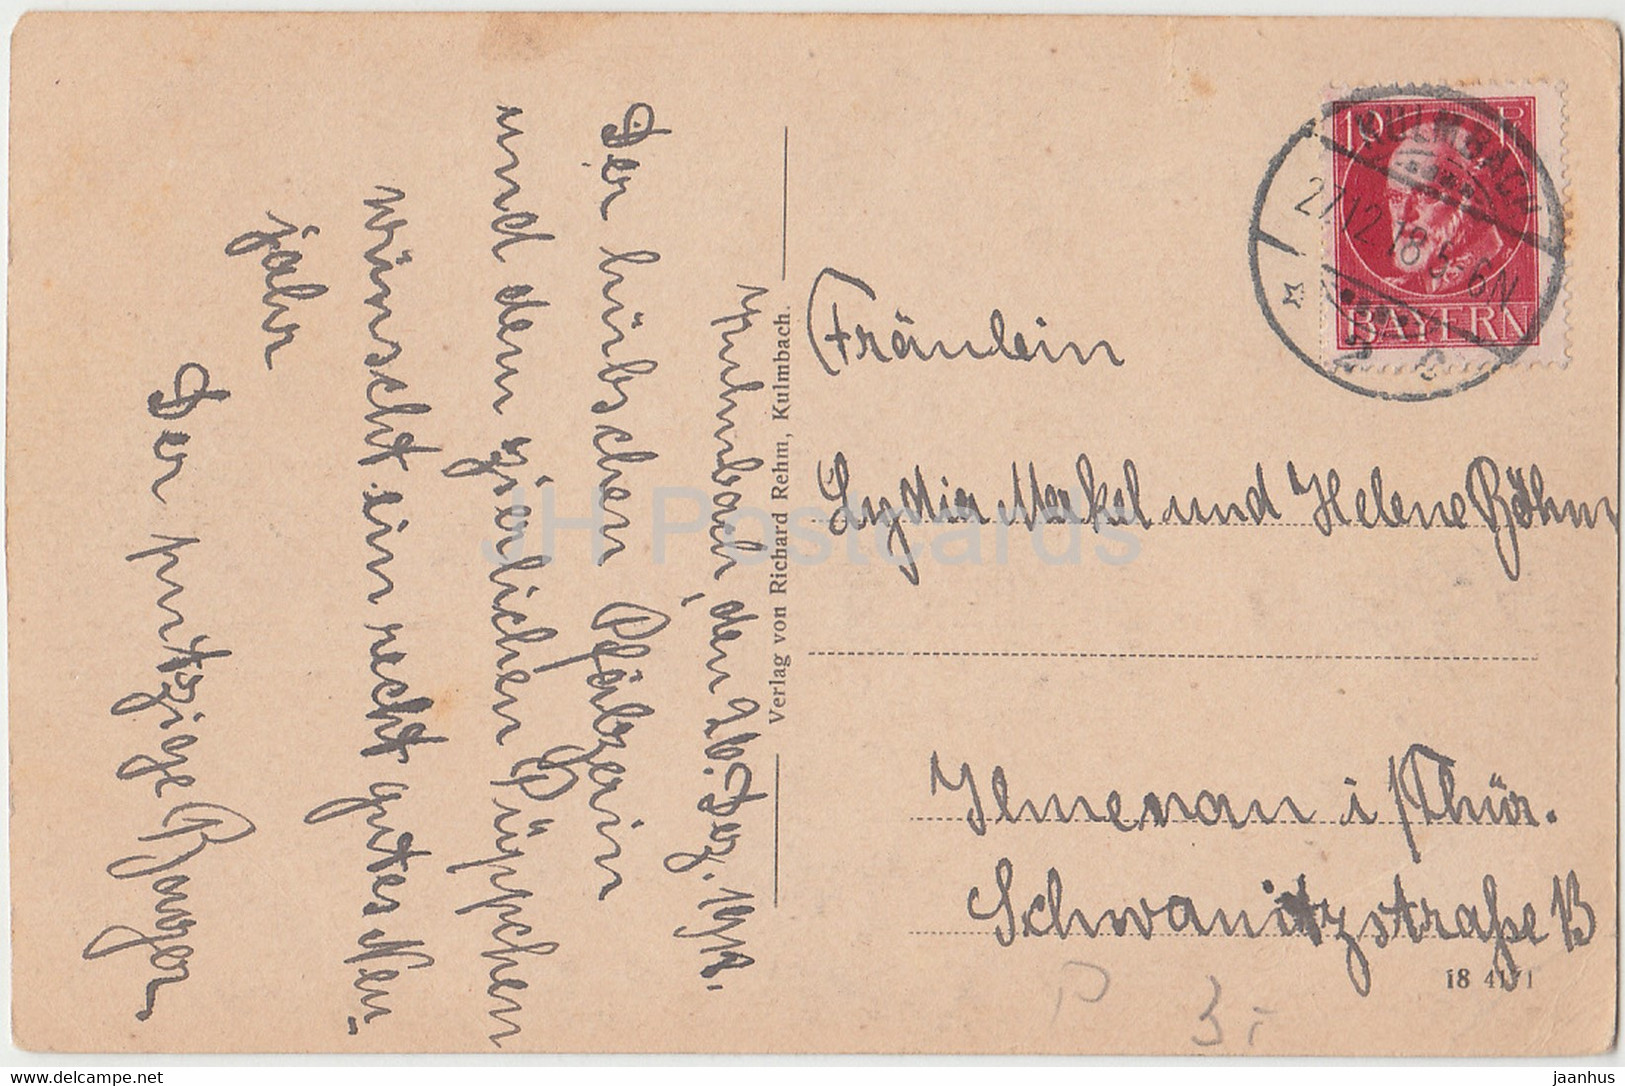 Kulmbach, den 26. Dez. 1918.
Der hübschen Pfälzerin
und dem zierlichen Püppchen
wünscht ein recht gutes Neu-
jahr
Der putzige
Verlag von Richard Rehm, Kulmbach.
Fräulein
Lydia Markel und Helene Böhm
Ilmenau i/Thür.
Schwanitzstraße 13
18 4171
P 3.-
10 Pf
BAYERN
KULMBACH
27.12.18 5-6N
JH Postcards
delcampe.net
jaanhus